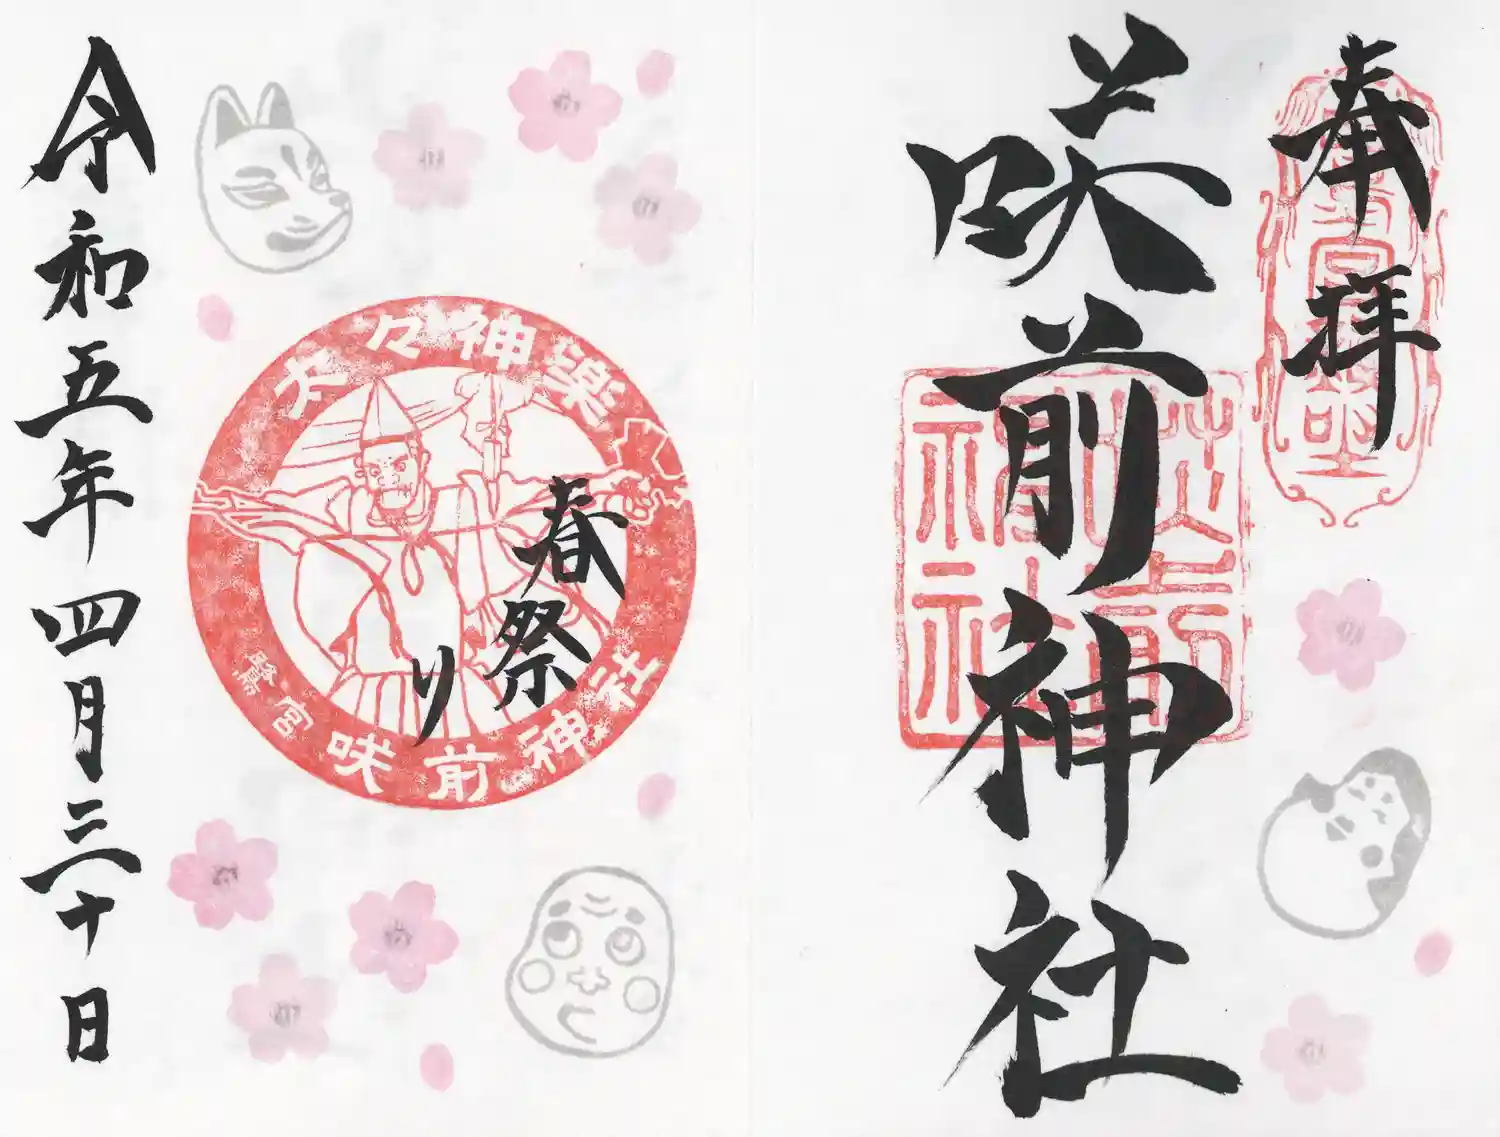 奉拝
咲前神社
咲前
神社
太々神楽
春祭り
鷺宮 咲前神社
令和五年四月三十日